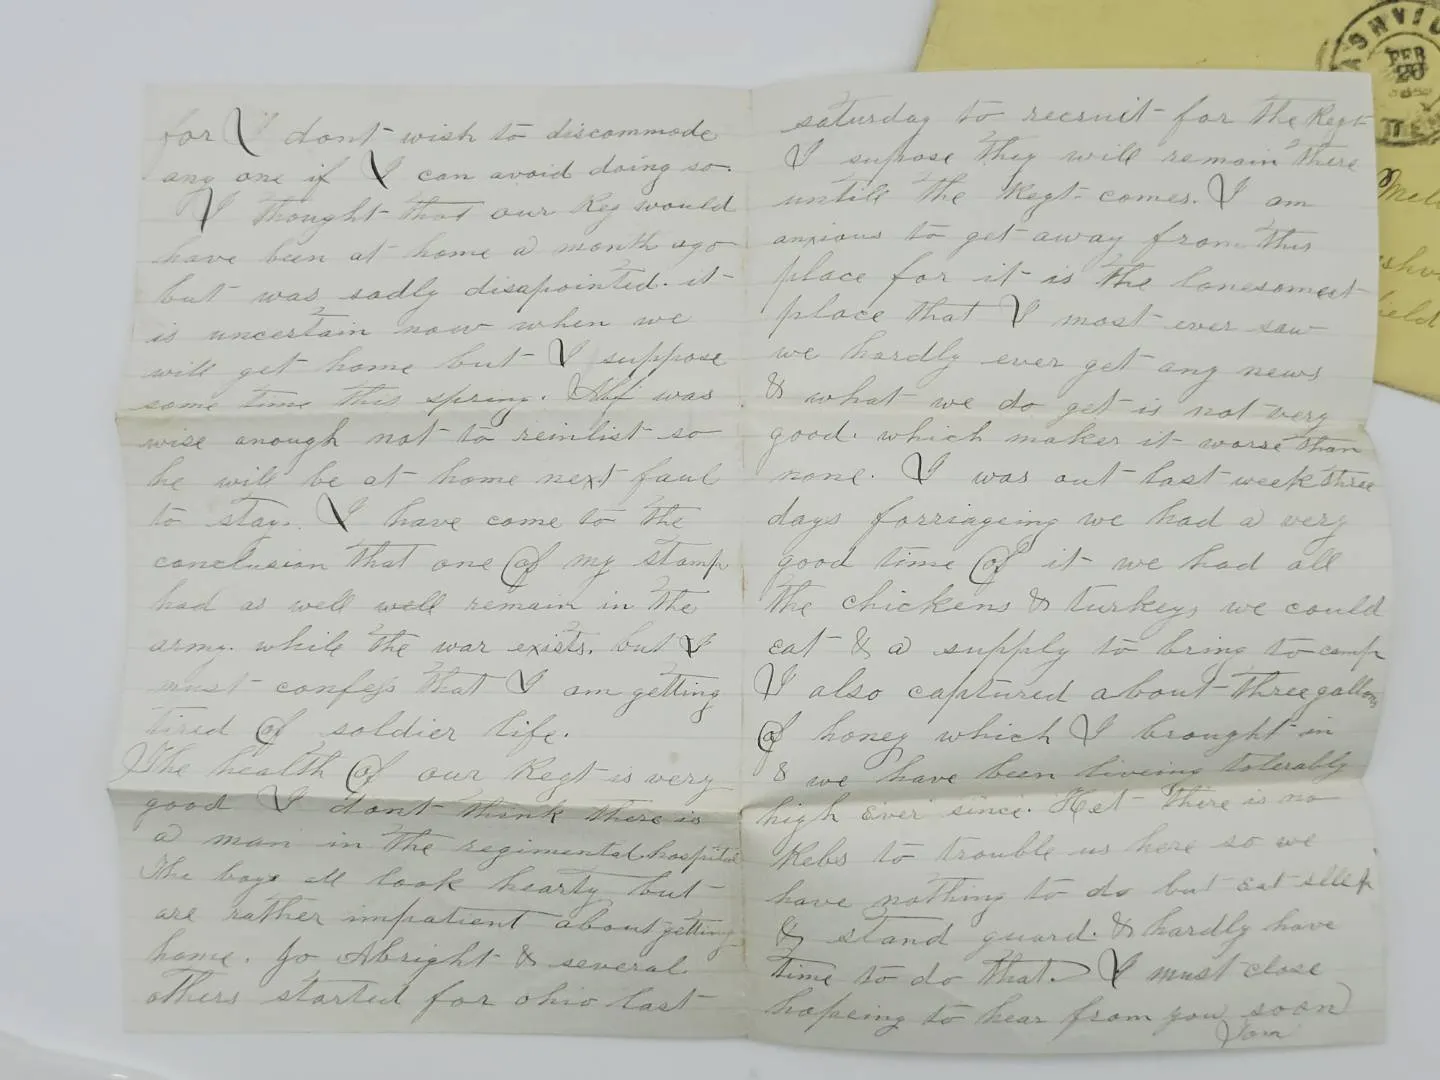 for I dont wish to discommode
any one if I can avoid doing so.
I thought that our Reg would
have been at home a month ago
but was sadly disapointed. it
is uncertain now when we
will get home but I suppose
some time this spring. was
wise anough not to reinlist so
he will be at home next faul
to stay. I have come to the
conclusion that one of my stamp
had as well well remain in the
army. while the war exists. but I
must confess that I am getting
tired of soldier life.
The health of our Regt is very
good I dont think there is
a man in the regimental hospital
The boys all look hearty but
are rather impatient about getting
home. Jo Albright & several
others started for ohio last
saturday to recruit for the Regt
I supose they will remain there
untill the Regt comes. I am
anxious to get away from this
place for it is the lonesomest
place that I most ever saw
we hardly ever get any news
& what we do get is not very
good. which makes it worse than
none. I was out last week three
days forriageing we had a very
good time of it we had all
the chickens & turkeys we could
eat & a supply to bring to camp
I also captured about three gallons
of honey which I brought in
& we have been liveing tolerably
high ever since. there is no
Rebs to trouble us here so we
have nothing to do but eat sleep
& stand guard. & hardly have
time to do that. I must close
hopeing to hear from you soon
FEB
20